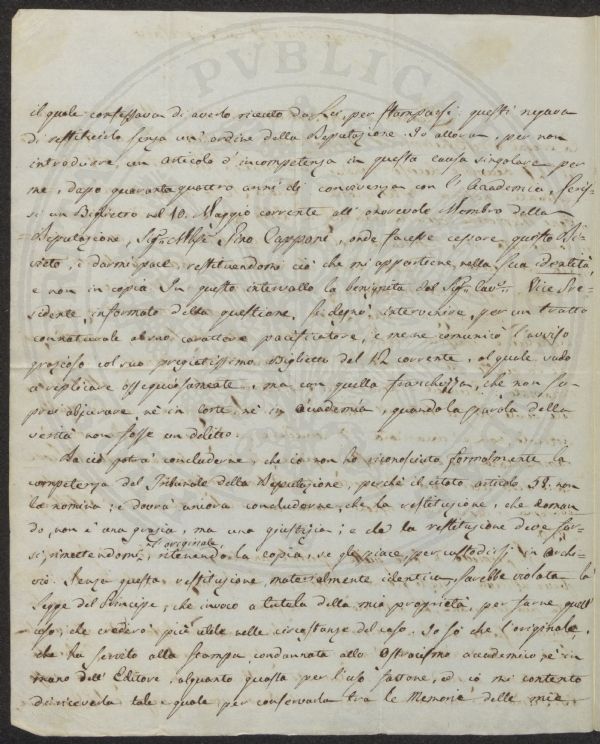 il quale confessava di averlo ricevuto da Lei, per stamparsi; questi negava
di restituirlo senza un' ordine della Deputazione. Io allora, per non
introdurre un articolo d'incompetenza in questa causa singolare per
me, dapo quarantaquattro anni di convivenza con l'Academia, scris-
si un Biglietto nel 10. Maggio corrente all' onorevole Membro della
Deputazione, Sig.r March.e Gino Capponi, onde facesse cessare questo Di-
vieto, e darmi pace, restituendomi ciò che mi appartiene nella sua identità,
e non in copia. In questo intervallo la benignità del Sig.r Cav.re Vice Pre-
sidente, informato della questione, si degnò intervenire, per un tratto
connaturale al suo carattere pacificatore, e me ne comunicò l'avviso
grazioso col suo pregiatissimo Biglietto del 12 corrente, al quale vado
a replicare ossequiosamente, ma con quella franchezza, che non sa-
prei abjurare, nè in corte, nè in Academia, quando la parola della
verità non fosse un delitto.
Da ciò potrà concluderne, che io non ho riconosciuto formalmente la
competenza del Tribunale della Deputazione, perchè il citato articolo 52. non
la nomina; e dovrà ancora concluderne, che la restituzione, che doman
do, non è una grazia, ma una giustizia; e che la restituzione deve far-
si, rimettendomi l'originale, ritenendo la copia, se gli piace per custodirsi in archi-
vio. Senza questa restituzione materialmente identica, sarebbe violata la
Legge del Principe, che invoco a tutela della mia proprietà, per farne quell'
uso, che crederò più utile nelle circostanze del caso. Io so che l'originale,
che ha servito alla stampa condannata allo Ostracismo accademico è in
mano dell' Editore, alquanto guasta per l'uso fattone, ed io mi contento
di riceverla tale e quale per conservarla tra le Memorie delle mie
PVBLICA